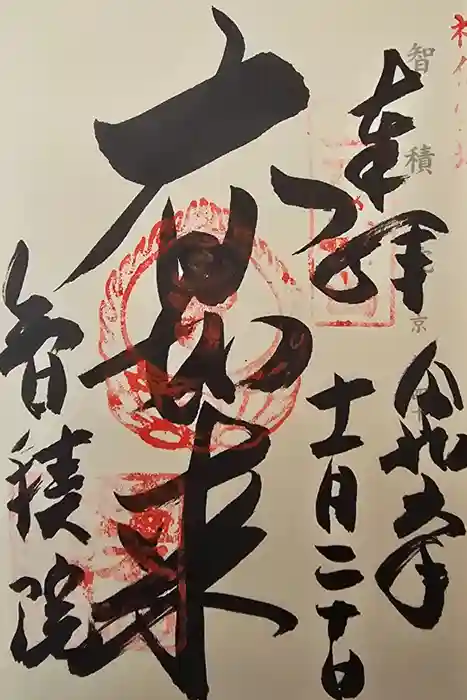 智積
京
奉拝
令和五年
十一月二十日
大日如来
智積院